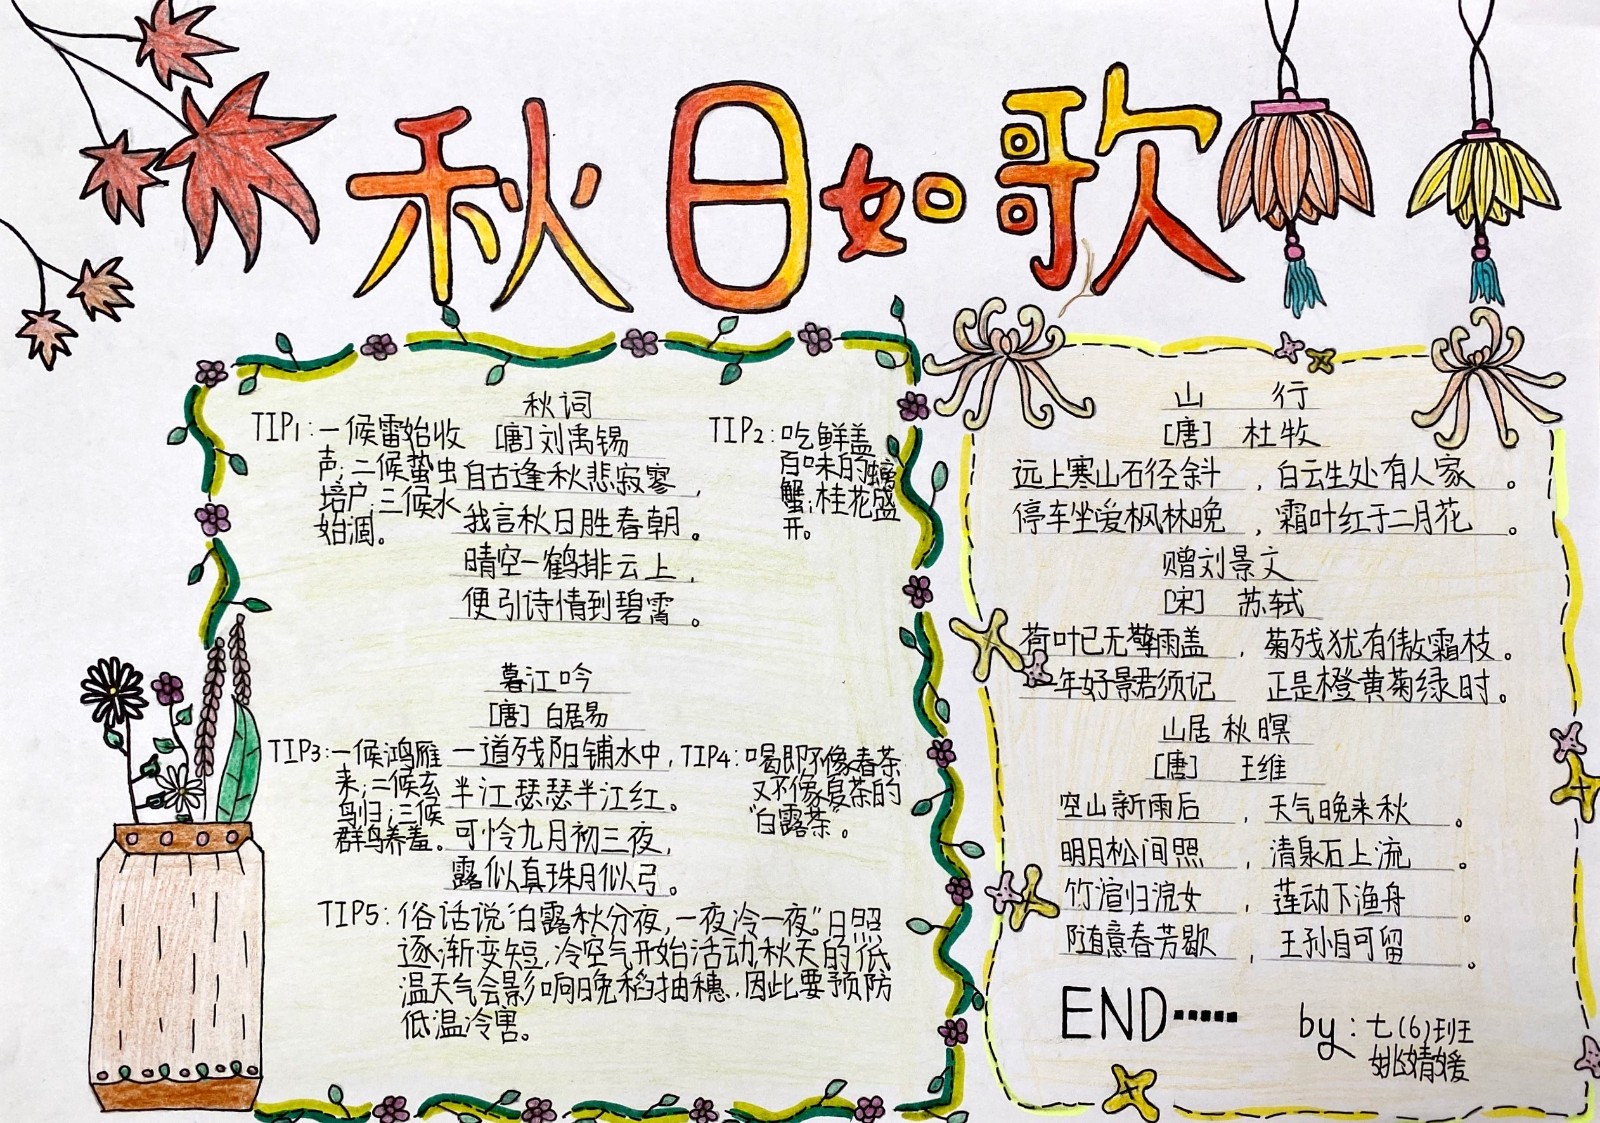 秋日如歌
秋词
[唐]刘禹锡
自古逢秋悲寂寥，
我言秋日胜春朝。
晴空一鹤排云上，
便引诗情到碧霄。
TIP1:一候雷始收
声;二候蛰虫
培户;三候水
始涸。
TIP2:吃鲜盖
百味的螃
蟹;桂花盛
开。
暮江吟
[唐]白居易
一道残阳铺水中，
半江瑟瑟半江红。
可怜九月初三夜，
露似真珠月似弓。
TIP3:一候鸿雁
来;二候玄
鸟归;三候
群鸟养羞。
TIP4:喝即不像春茶
又不像夏茶的
“白露茶”。
TIP5:俗话说“白露秋分夜,一夜冷一夜”日照
逐渐变短,冷空气开始活动,秋天的低
温天气会影响晚稻抽穗,因此要预防
低温冷害。
山 行
[唐] 杜牧
远上寒山石径斜，白云生处有人家。
停车坐爱枫林晚，霜叶红于二月花。
赠刘景文
[宋] 苏轼
荷叶已无擎雨盖，菊残犹有傲霜枝。
一年好景君须记 正是橙黄菊绿时。
山居秋暝
[唐] 王维
空山新雨后，天气晚来秋。
明月松间照，清泉石上流。
竹渲归浣女，莲动下渔舟。
随意春芳歇，王孙自可留。
END······
by:七(6)班
姚婧媛